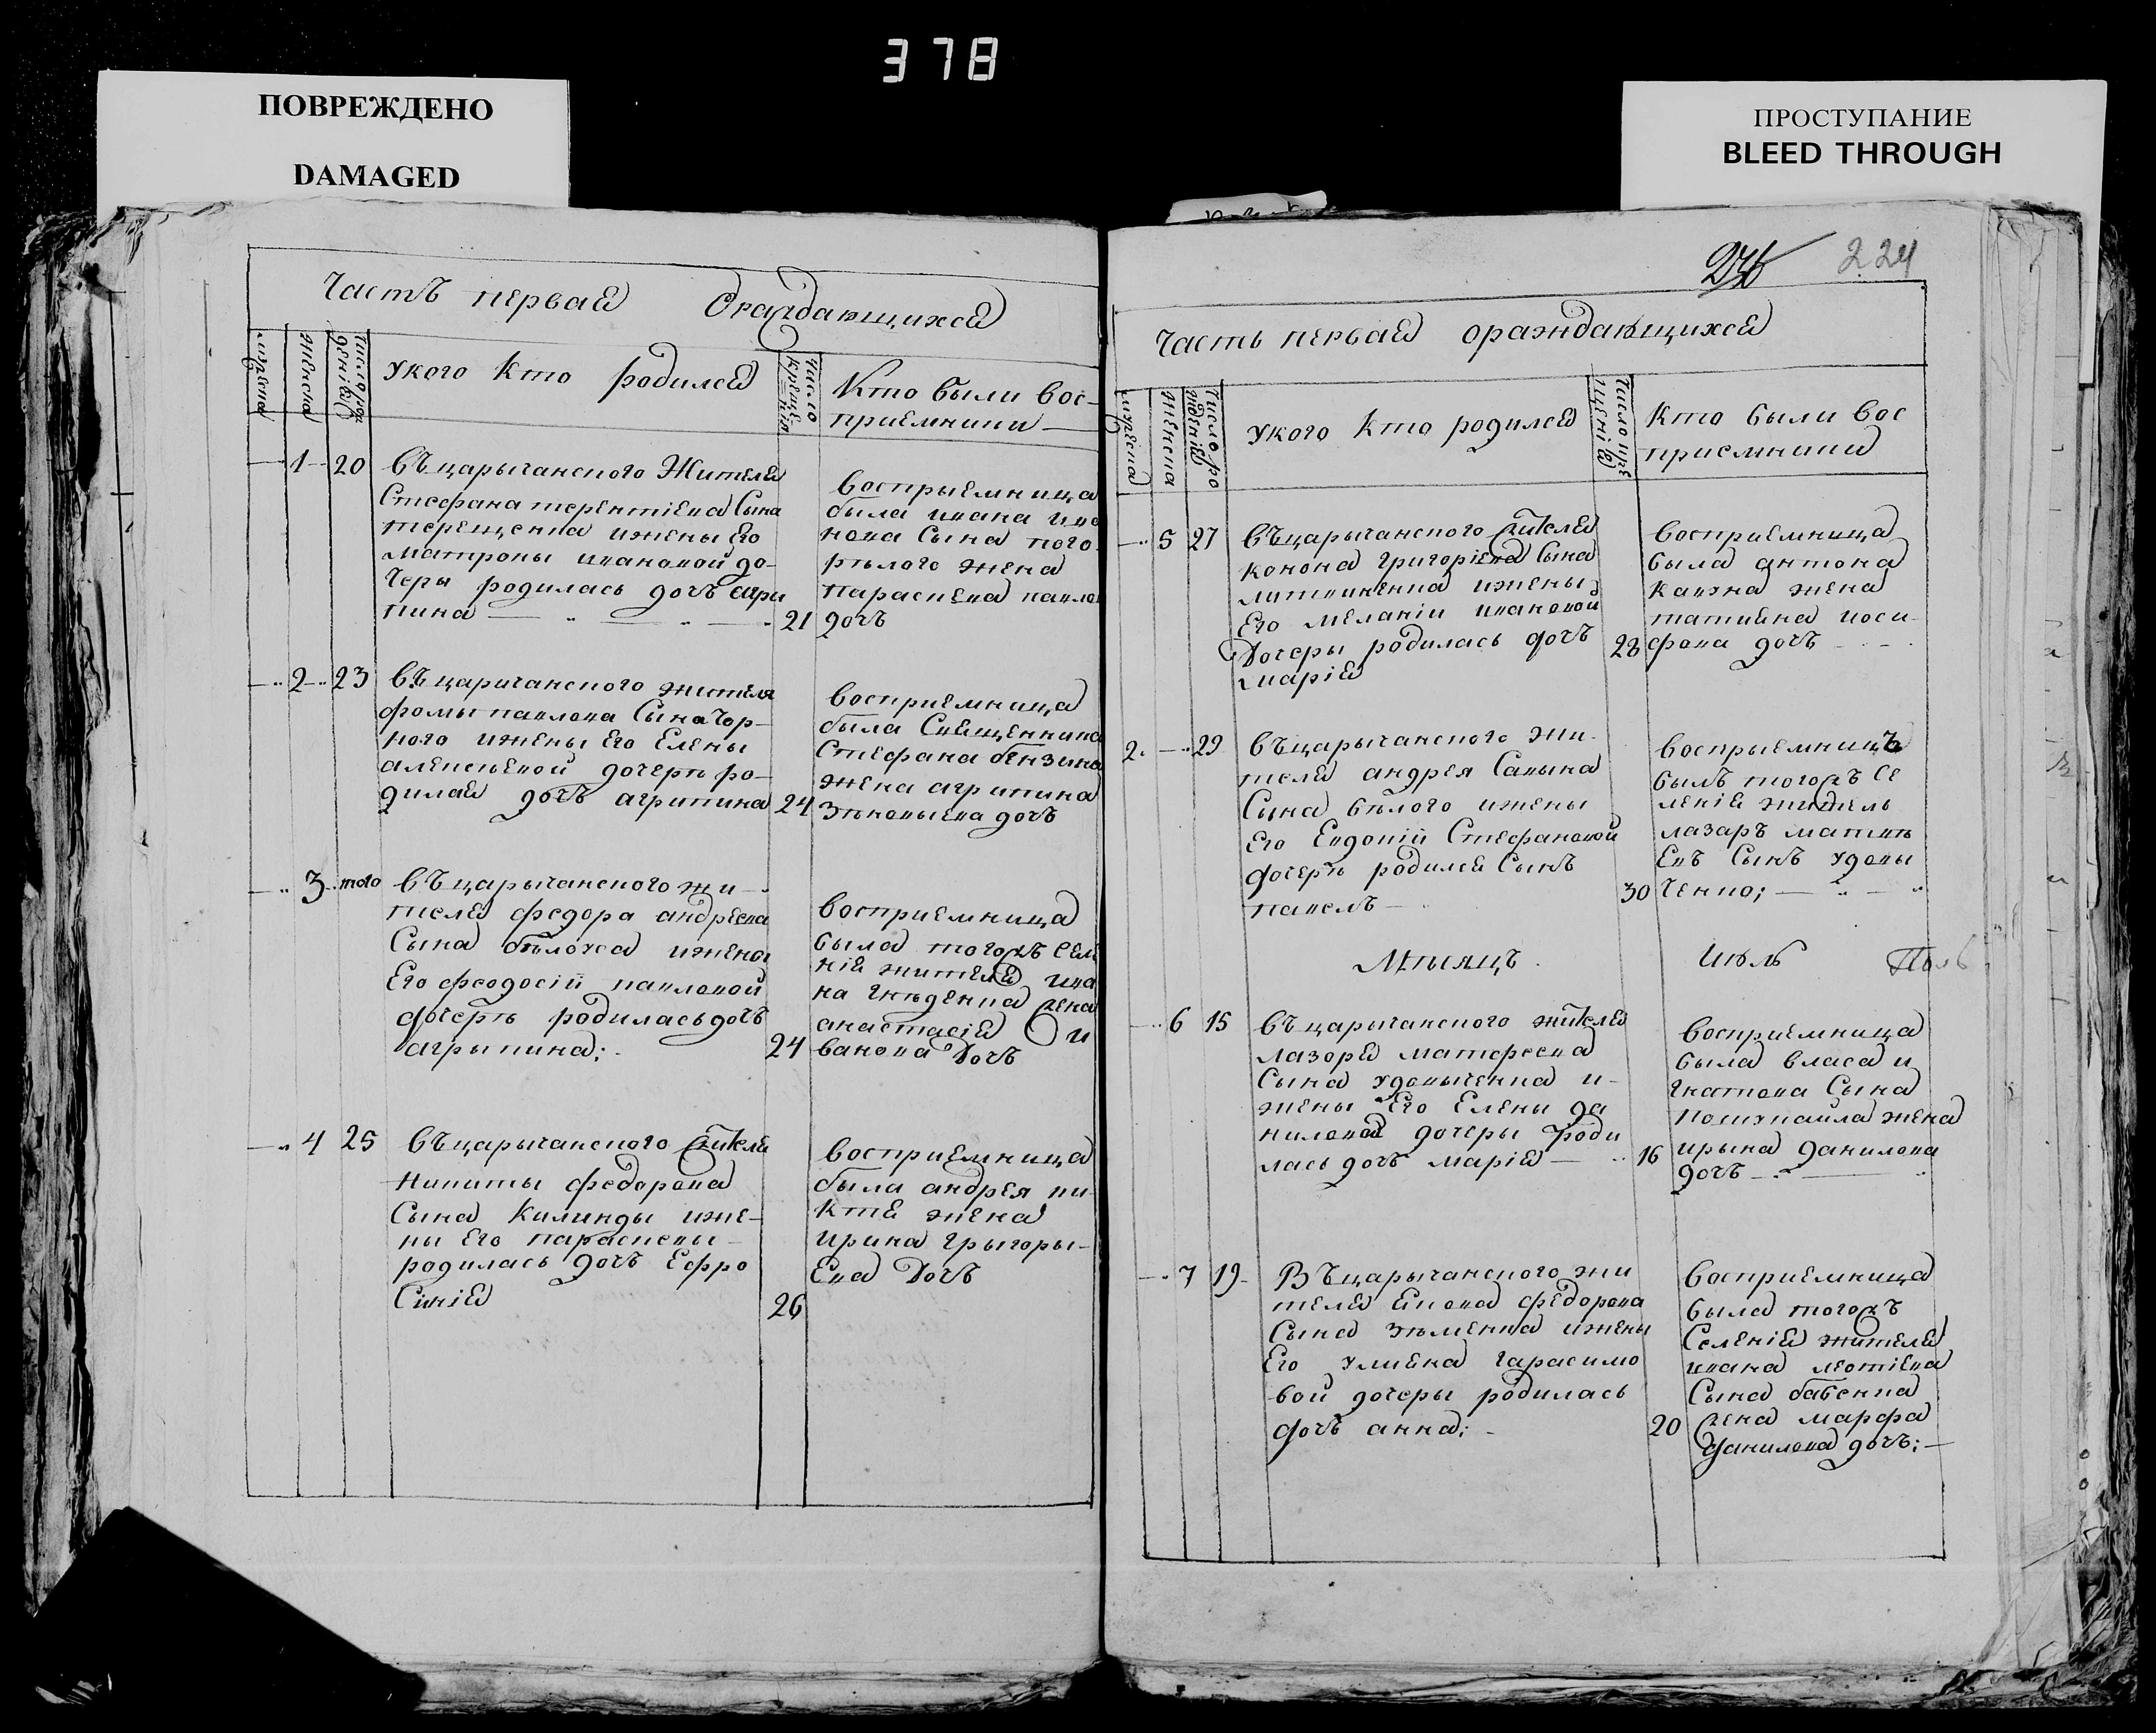 378
ПОВРЕЖДЕНО
DAMAGED
ПРОСТУПАНИЕ
BLEED THROUGH
224
Часть первая Ораждающихся
мужеска
женска
число рождения
У кого Кто родился
число крещения
Кто были вос-
приемники
1 20 Въ царычанского Жителя
Стефана терентіева Сына
терещенка и жены Его
матроны ивановой до-
черы родилась дочъ агри
пина
21
Восприемница
была ивана ива
нова Сына того
рѣлого жена
параскева павло
дочъ
2 23 Въ царичанского жителя
фомы павлова Сына Чор-
ного и жены Его Елены
алексѣевой дочерѣ ро-
дилая дочъ агрипина
24
Восприемница
была Священника
Стефана бензина
жена агрипина
дочъ
3 того Въ царычанского жи-
теля федора андреева
Сына бѣлоуса и жены
Его феодосіи павловой
дочерѣ родилась дочъ
агрыпина;
24
Восприемница
была тогожъ Селе
нія жителя ива
на гнѣденка жена
анастасія и
ванова Дочъ
4 25 Въ царычанского жителя
Никиты федорова
Сына Килинды и же-
ны Его параскевы
родилась дочъ Ефро
Синія
26
Восприемница
была андрея ни
Ктѣ жена
ирина Грыгоры-
Ева Дочъ
Часть первая ораждающихся
мужеска
женска
число рождения
У кого Кто родился
число крещенія
Кто были вос
приемники
5 27 Въ царычанского жителя
Конона Григоріева Сына
литвиненка и жены
Его меланіи ивановой
Дочеры родилась дочъ
марія
28
Восприемница
была антона
жена
татияна иоси
фова дочъ
2. 29 Въ царычанского жи-
теля андрея Савына
Сына бѣлого и жены
Его Евдокіи Стефановой
дочерѣ родился Сынъ
павелъ
30
Восприемницъ
былъ тогожъ Се
ленія житель
лазаръ матвѣ
Евъ Сынъ удовы
Ченко;
Мѣсяцъ
Июль
6 15 Въ царычанского жителя
лазоря матфеева
Сына удовыченка и
жены Его Елены да
ниловой дочеры роди
лась дочъ марія
16
Восприемница
была власа и
гнатова Сына
жена
ирына данилова
дочъ
7 19 Въ царычанского жи
теля якова федорова
Сына зѣменка и жены
Его улияна гарасимо
вой дочеры родилась
дочъ анна;
20
Восприемница
была тогожъ
Селенія жителя
ивана леотіева
Сына бабенка
жена марфа
данилова дочъ;